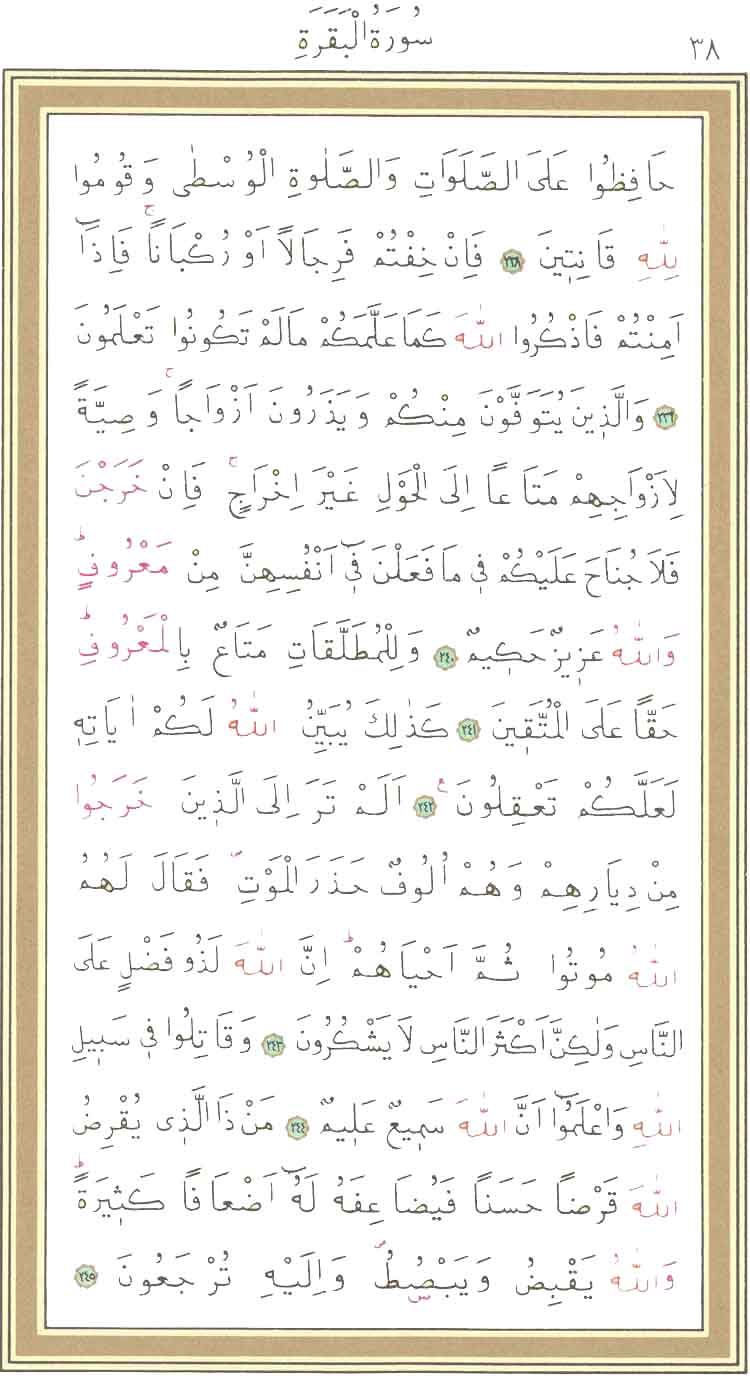 ٣٨
سُورَةُ الْبَقَرَةِ
حَافِظُوا عَلَى الصَّلَوَاتِ وَالصَّلٰوةِ الْوُسْطٰى وَقُومُوا
لِلّٰهِ قَانِتٖينَ ﴿٢٣٨﴾ فَاِنْ خِفْتُمْ فَرِجَالاً اَوْ رُكْبَاناًۚ فَاِذَٓا
اَمِنْتُمْ فَاذْكُرُوا اللّٰهَ كَمَا عَلَّمَكُمْ مَالَمْ تَكُونُوا تَعْلَمُونَ
﴿٢٣٩﴾ وَالَّذٖينَ يُتَوَفَّوْنَ مِنْكُمْ وَيَذَرُونَ اَزْوَاجاًۚ وَصِيَّةً
لِاَزْوَاجِهِمْ مَتَاعاً اِلَى الْحَوْلِ غَيْرَ اِخْرَاجٍۚ فَاِنْ خَرَجْنَ
فَلَا جُنَاحَ عَلَيْكُمْ فٖى مَا فَعَلْنَ فٖٓى اَنْفُسِهِنَّ مِنْ مَعْرُوفٍؕ
وَاللّٰهُ عَزٖيزٌ حَكٖيمٌ ﴿٢٤٠﴾ وَلِلْمُطَلَّقَاتِ مَتَاعٌ بِالْمَعْرُوفِؕ
حَقّاً عَلَى الْمُتَّقٖينَ ﴿٢٤١﴾ كَذٰلِكَ يُبَيِّنُ اللّٰهُ لَكُمْ اٰيَاتِهٖ
لَعَلَّكُمْ تَعْقِلُونَ ﴿٢٤٢﴾ ع اَلَمْ تَرَ اِلَى الَّذٖينَ خَرَجُوا
مِنْ دِيَارِهِمْ وَهُمْ اُلُوفٌ حَذَرَ الْمَوْتِࣕ فَقَالَ لَهُمُ
اللّٰهُ مُوتُوا ثُمَّ اَحْيَاهُمْؕ اِنَّ اللّٰهَ لَذُو فَضْلٍ عَلَى
النَّاسِ وَلٰكِنَّ اَكْثَرَ النَّاسِ لَا يَشْكُرُونَ ﴿٢٤٣﴾ وَقَاتِلُوا فٖى سَبٖيلِ
اللّٰهِ وَاعْلَمُٓوا اَنَّ اللّٰهَ سَمٖيعٌ عَلٖيمٌ ﴿٢٤٤﴾ مَنْ ذَا الَّذٖى يُقْرِضُ
اللّٰهَ قَرْضاً حَسَناً فَيُضَاعِفَهُ لَهُٓ اَضْعَافاً كَثٖيرَةًؕ
وَاللّٰهُ يَقْبِضُ وَيَبْصُۣطُࣕ وَاِلَيْهِ تُرْجَعُونَ ﴿٢٤٥﴾